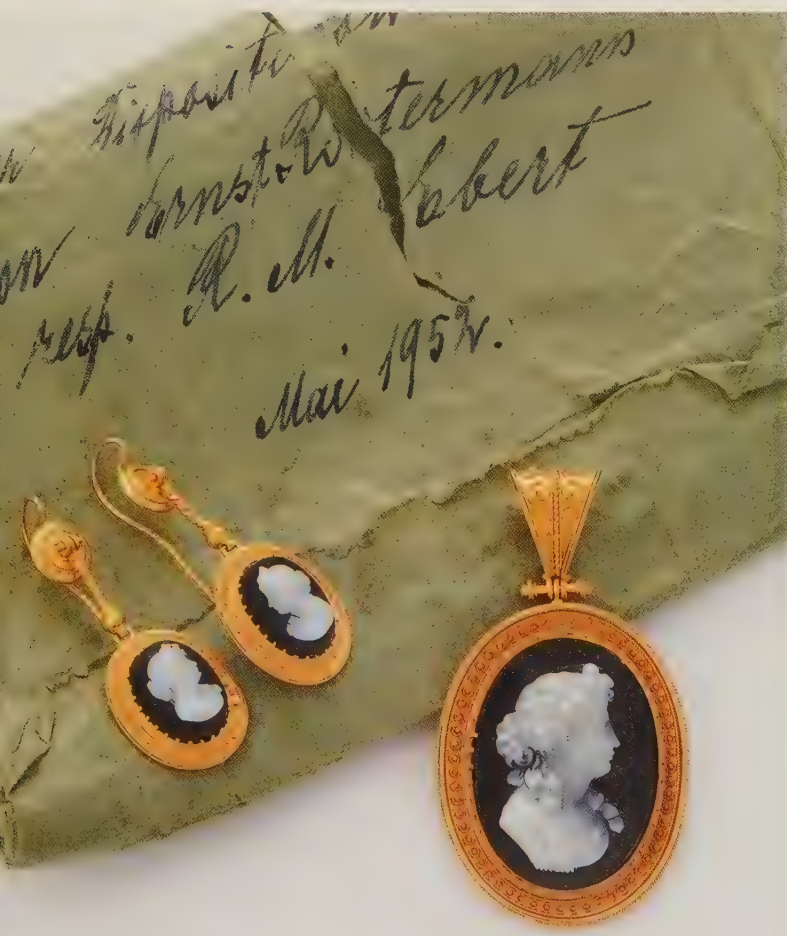 Disposition
Ernst Rotermann
resp. R. M. Ebert
Mai 1952.